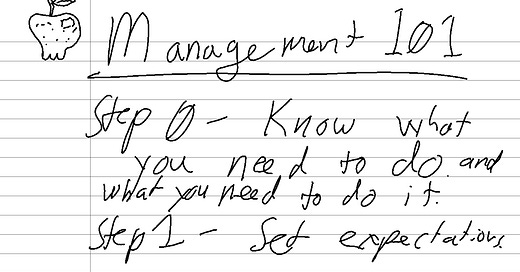 Management 101
Step 0 - Know what
you need to do and
what you need to do it.
Step 1 - Set expectations